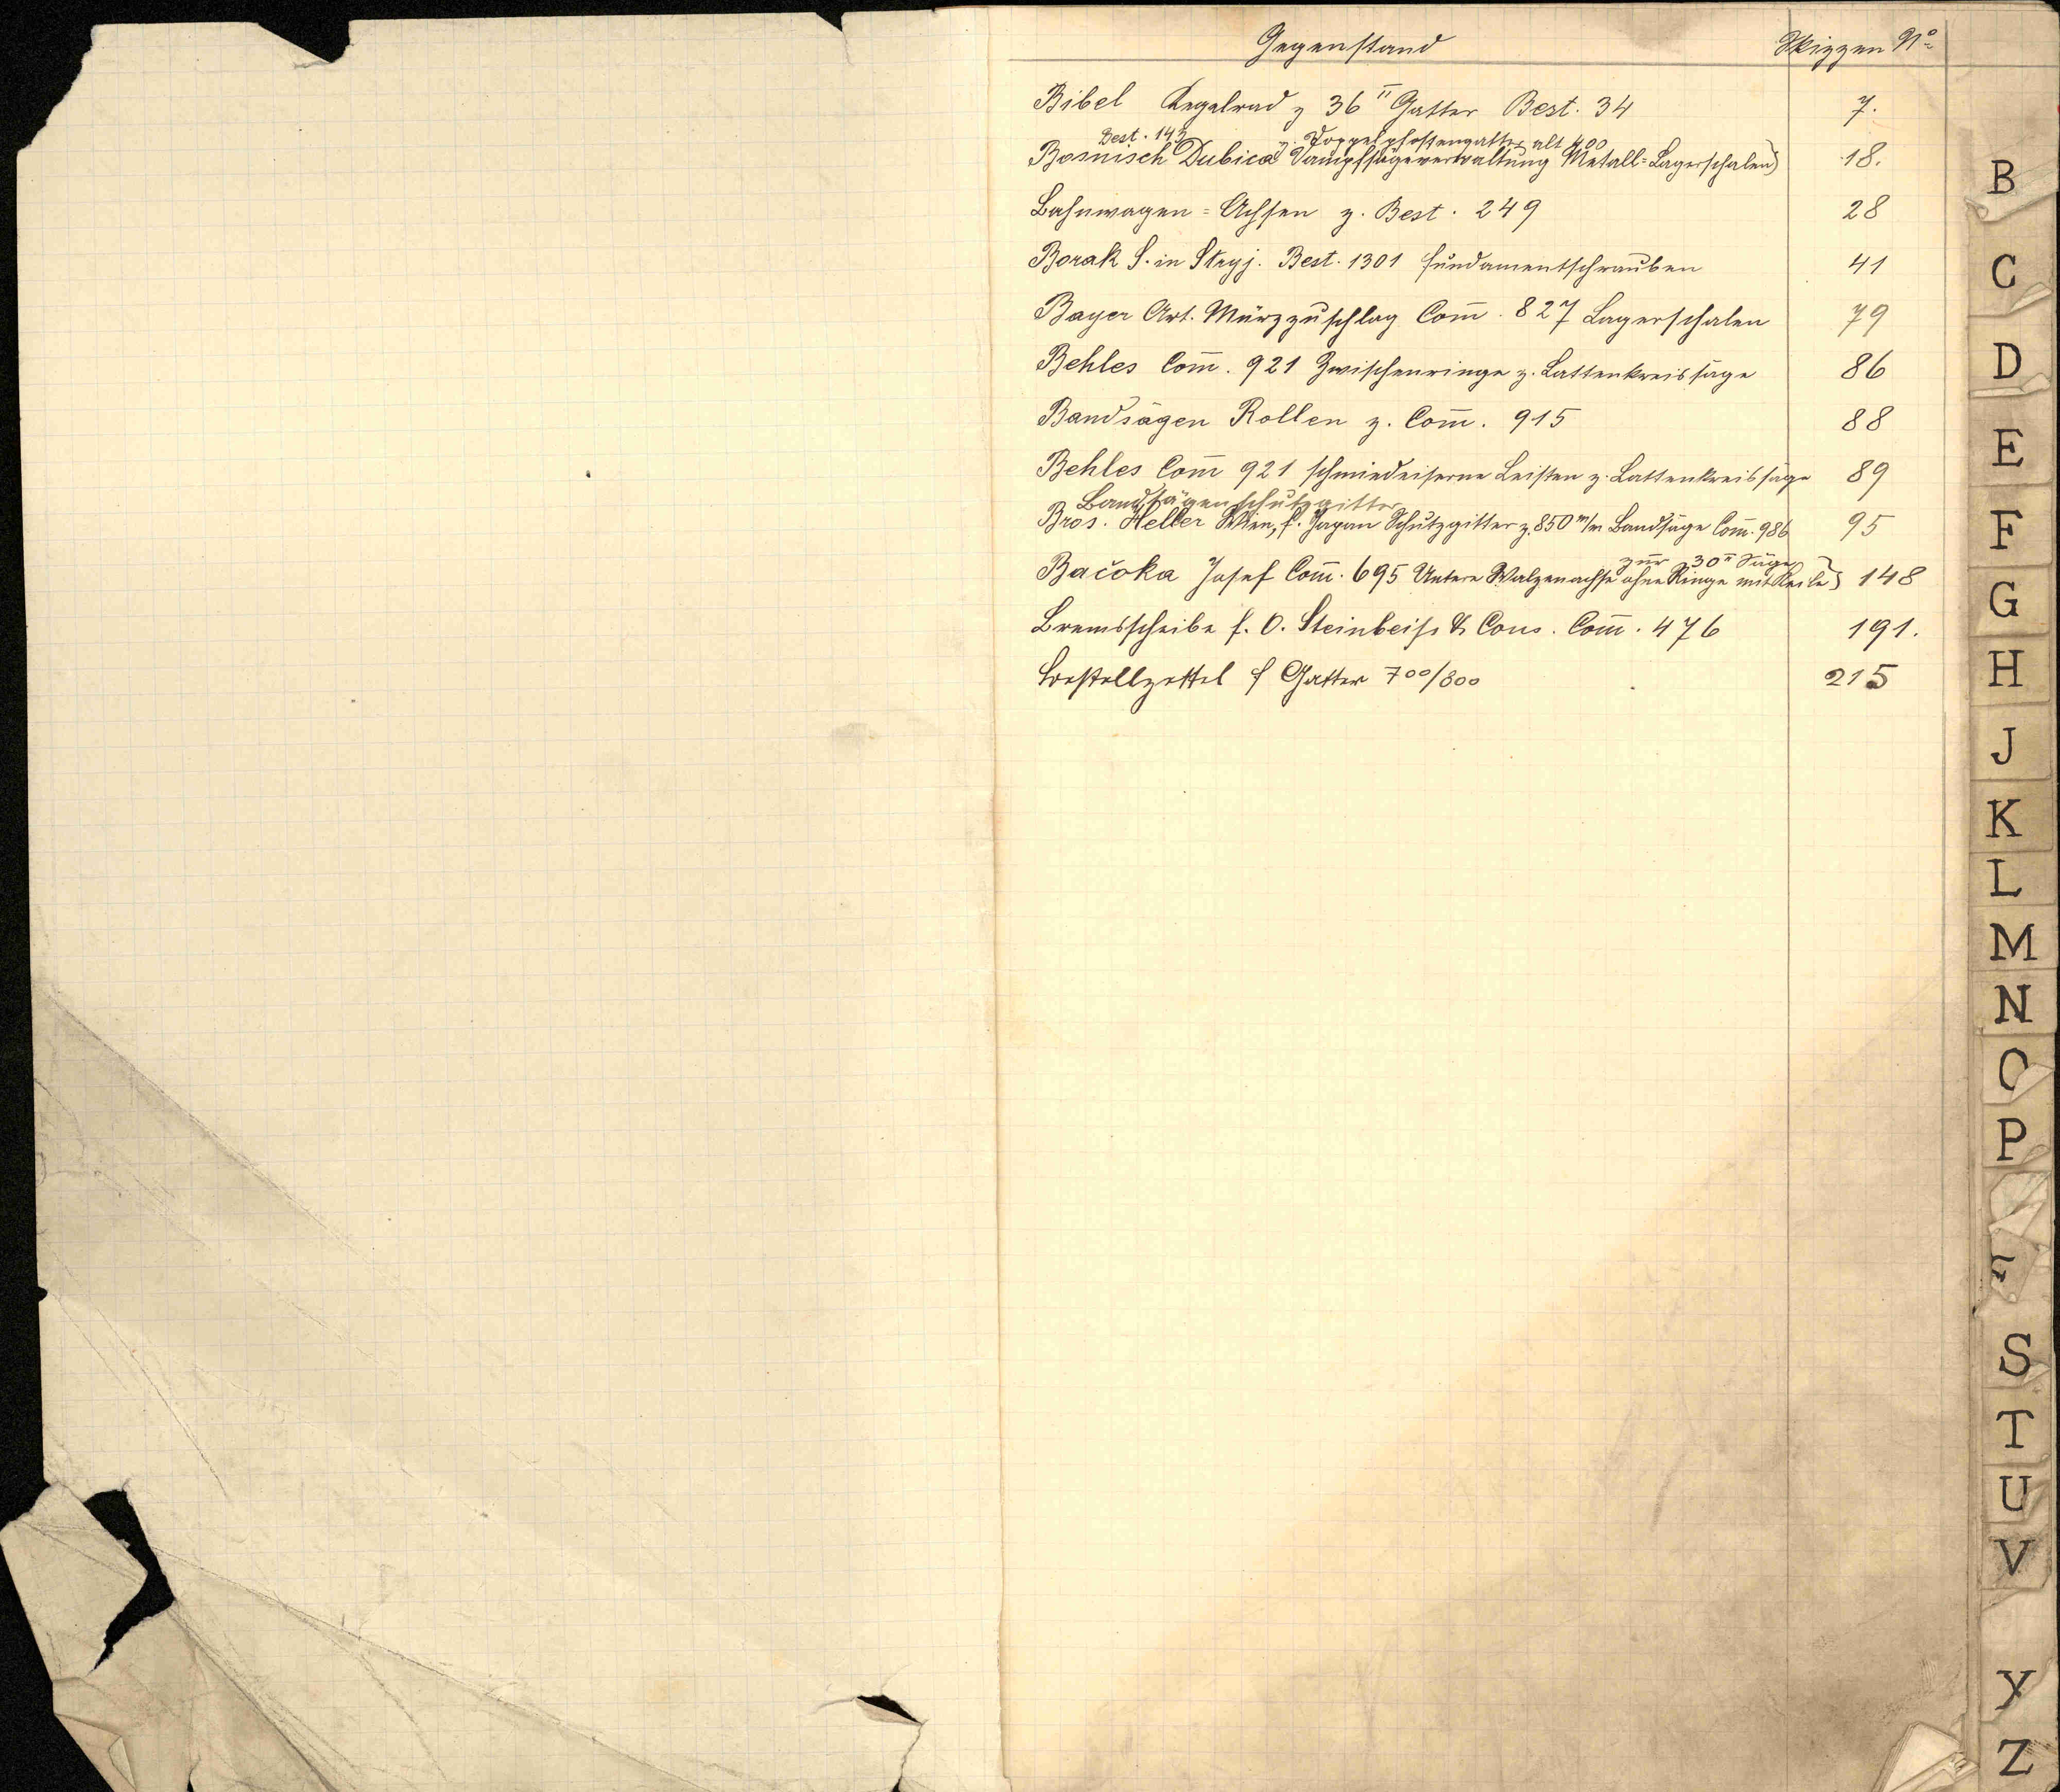 Gegenstand Skizzen No
Bibel Kegelrad z 36" Gatter Best. 34 7.
Best. 142 z. Doppelpfostengatter alt 400
Bosnisch Dubica Dampfsägeverwaltung Metall=Lagerschalen 18.
Bahnwagen=Achsen z. Best. 249 28
Borak S. in Stryj. Best. 1301 Fundamentschrauben 41
Bayer Art. Mürzzuschlag Com̄. 827 Lagerschalen 79
Behles Com̄. 921 Zwischenringe z. Lattenkreissäge 86
Bandsägen Rollen z. Com̄. 915 88
Behles Com̄ 921 schmiedeiserne Leisten z. Lattenkreissäge 89
Bandsägenschutzgitter
Bros. Heller Wien, f. Japan Schutzgitter z. 850 m/m Bandsäge Com̄. 986 95
zur 30" Säge
Bačoka Josef Com̄. 695 Untere Walzenachse ohne Ringe mit Keile 148
Bremsscheibe f. O. Steinbeiss & Cons. Com̄. 476 191.
Bestellzettel f Gatter 700/800 215
B
C
D
E
F
G
H
J
K
L
M
N
O
P
S
T
U
V
Y
Z